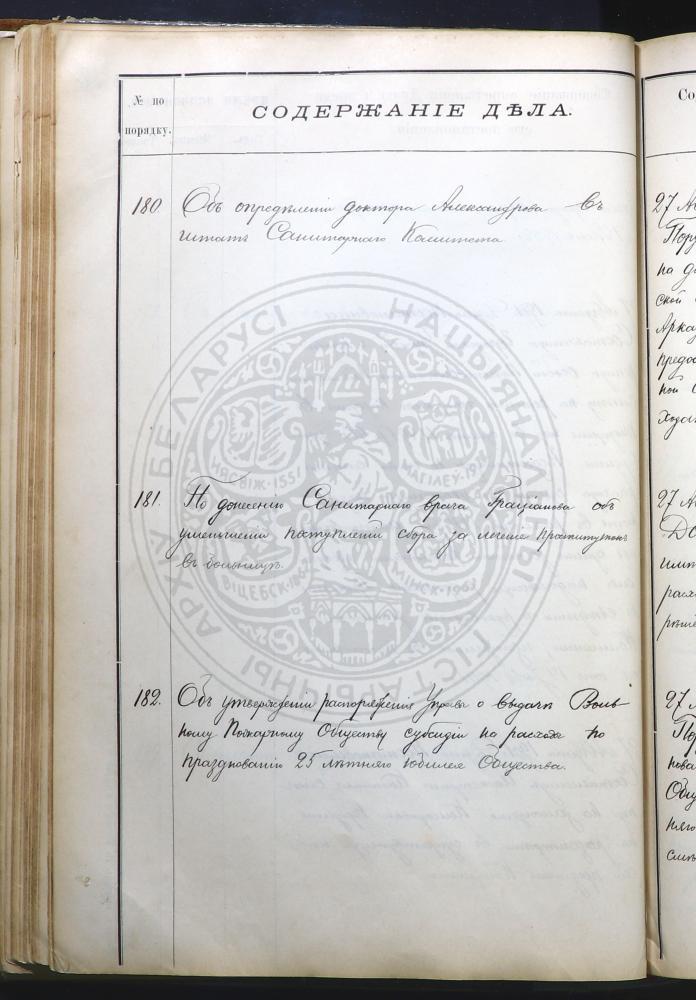 № по
порядку.
СОДЕРЖАНІЕ ДѢЛА.
180. Объ опредѣленіи доктора Александрова въ
штатъ Санитарнаго Комитета
181. По донесенію Санитарнаго врача Граціанова объ
уменьшеніи поступленій сбора за леченіе проститутокъ
въ больницѣ.
182. Объ утвержденіи распоряженія Управы о выдачѣ Воль
ному Пожарному Обществу субсидіи на расходы по
празднованію 25 лѣтняго юбилея Общества.
НАЦЫЯНАЛЬНЫ
ГІСТАРЫЧНЫ
АРХІЎ БЕЛАРУСІ
НЯСВІЖ-155
МАГІЛЕЎ-19
ВІЦЕБСК-18
МІНСК-1963
Со
27
на
ской
Арка
предос
ной
27
27
Общ